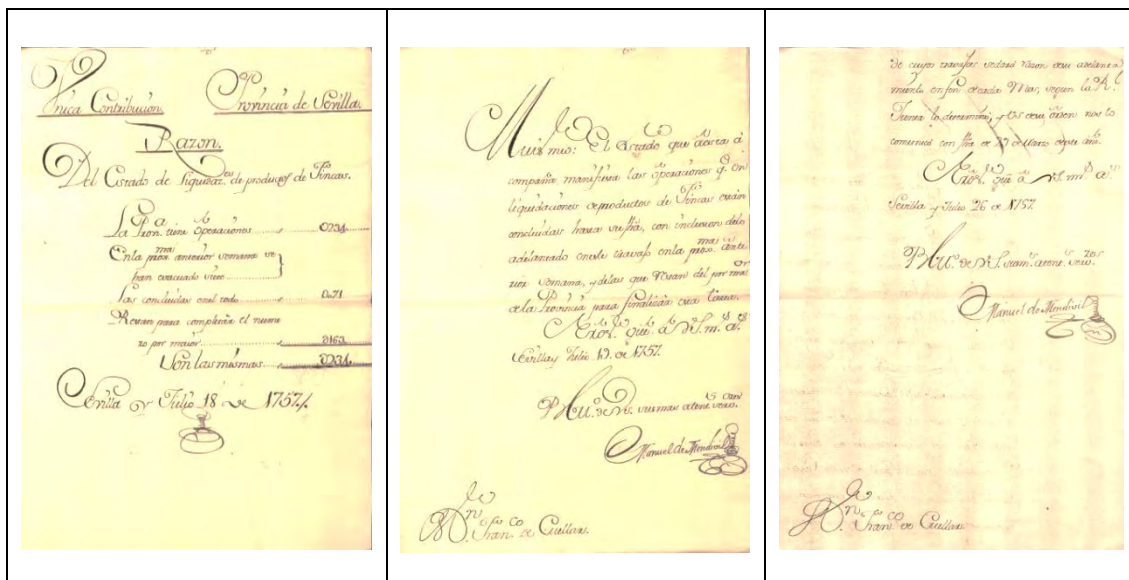 Unica Contribucion. Provincia de Sevilla.
Razon.
Del Estado de Liquidaz.es de productos de Fincas.
La Prov.a tiene operaciones 0234
En la prox.ma anterior semana se
han evacuado
Las concluidas en el todo 0071
Restan para completar el nume
ro por maior 0163
Son las mismas 0234
Sevilla y Julio 18 de 1757
Mui s.or mio: El Estado que acorta â
compaña, manifiesta las operaciones q.e en
liquidaciones de productos de Fincas están
concluidas hasta fha, con inclusion delo
adelantado en este travajo en la prox.ma ante
rior semana, y delas que restan del por maior
de la Provincia para finalizar esta tarea.
Sevilla y Julio 19 de 1757.
Manuel de Mendivil
S.or D.n Fran.co de Cuellar.
de cuyos travajos se dará razon de su adelanta
miento en fin de cada Mes, segun la R.l
Junta lo determinó, y de su orden nos lo
comunicó con fha de 29 de Marzo de este año.
Sevilla y Julio 26 de 1757.
Manuel de Mendivil
S.or D.n Fran.co de Cuellar.